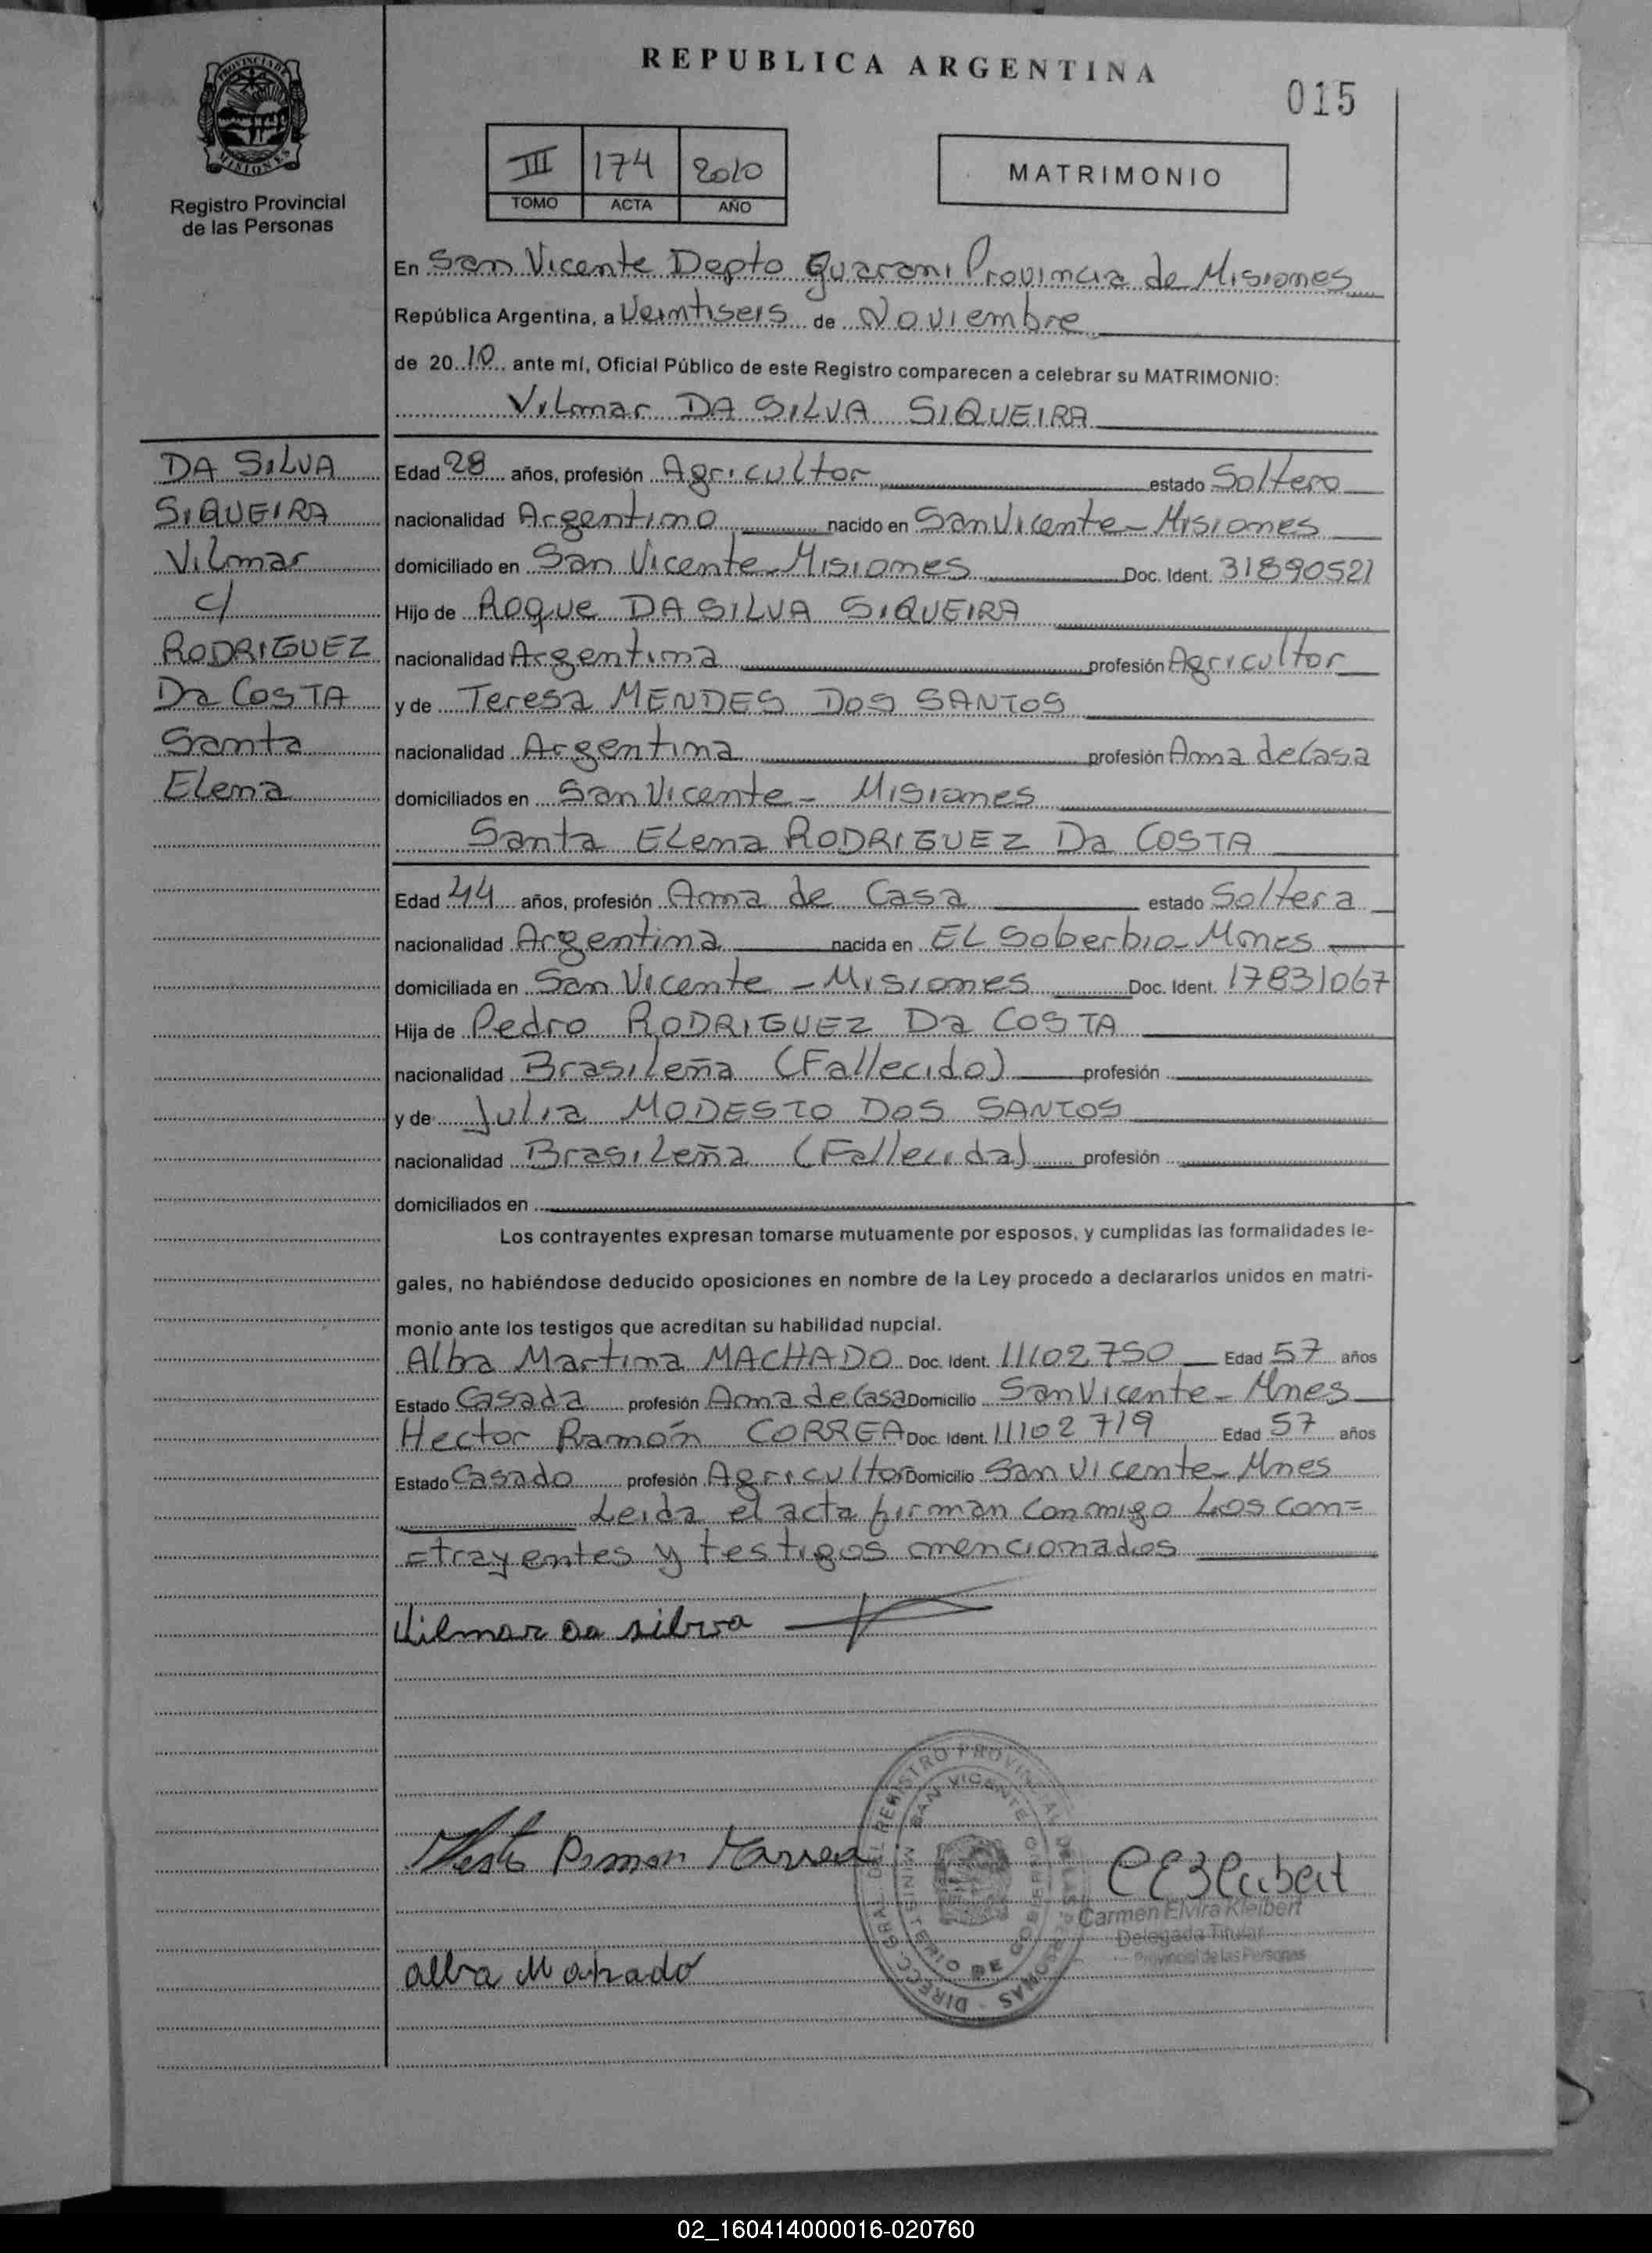 REPUBLICA ARGENTINA
015
PROVINCIA DE
MISIONES
Registro Provincial
de las Personas
III 174 2010
TOMO ACTA AÑO
MATRIMONIO
En San Vicente Depto Guarani Provincia de Misiones
República Argentina, a Veintiseis de Noviembre
de 2010 ante mí, Oficial Público de este Registro comparecen a celebrar su MATRIMONIO:
Vilmar DA SILVA SIQUEIRA
DA SILVA
SIQUEIRA
Vilmar
c/
RODRIGUEZ
Da COSTA
Santa
Elena
Edad 28 años, profesión Agricultor estado Soltero
nacionalidad Argentino nacido en San Vicente - Misiones
domiciliado en San Vicente - Misiones Doc. Ident. 31890521
Hijo de Roque DA SILVA SIQUEIRA
nacionalidad Argentina profesión Agricultor
y de Teresa MENDES DOS SANTOS
nacionalidad Argentina profesión Ama de Casa
domiciliados en San Vicente - Misiones
Santa Elena RODRIGUEZ Da COSTA
Edad 44 años, profesión Ama de Casa estado Soltera
nacionalidad Argentina nacida en EL Soberbio - Mnes
domiciliada en San Vicente - Misiones Doc. Ident. 17831067
Hija de Pedro RODRIGUEZ Da COSTA
nacionalidad Brasileña (Fallecido) profesión
y de Julia MODESTO DOS SANTOS
nacionalidad Brasileña (Fallecida) profesión
domiciliados en
Los contrayentes expresan tomarse mutuamente por esposos, y cumplidas las formalidades le-
gales, no habiéndose deducido oposiciones en nombre de la Ley procedo a declararlos unidos en matri-
monio ante los testigos que acreditan su habilidad nupcial.
Alba Martina MACHADO Doc. Ident. 11102750 Edad 57 años
Estado Casada profesión Ama de Casa Domicilio San Vicente - Mnes
Hector Ramón CORREA Doc. Ident. 11102719 Edad 57 años
Estado Casado profesión Agricultor Domicilio San Vicente - Mnes
Leida el acta firman conmigo Los con=
=trayentes y testigos mencionados
Vilmar da silva
alba Machado
DIRECC. GRAL. DEL REGISTRO PROVINCIAL DE LAS PERSONAS
MINISTERIO DE GOBIERNO
SAN VICENTE
Carmen Elvira Kleibert
Delegada Titular
Provincial de las Personas
02_160414000016-020760